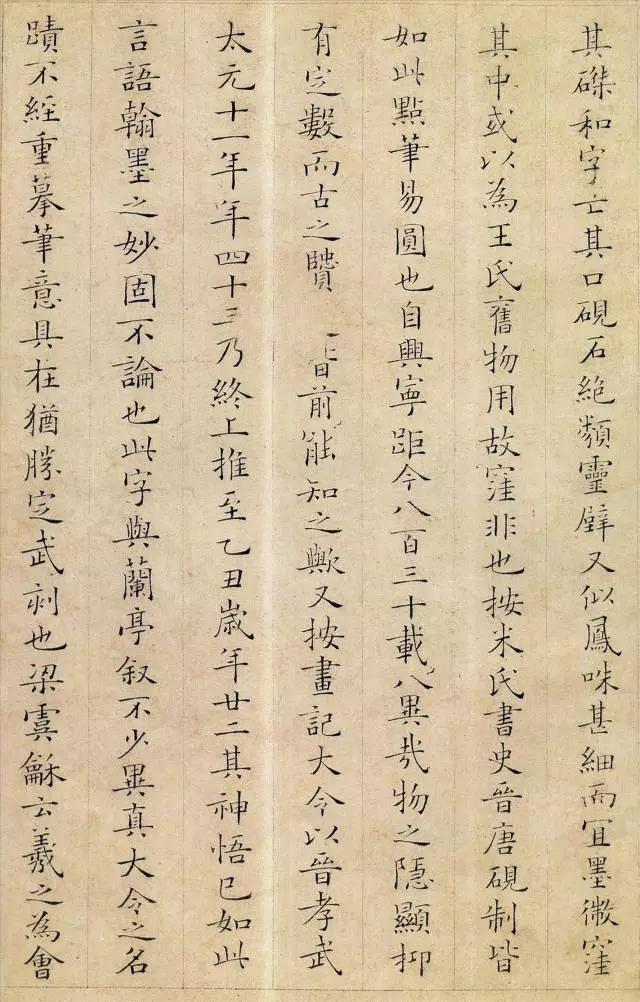 其磔和字亡其口硯石絶類靈壁又似鳳咮甚細而宜墨微窪
其中或以為王氏舊物用故窪非也按米氏書史晉唐硯制皆
如此點筆易圓也自興寧距今八百三十載八異哉物之隱顯抑
有定數而古之 前能知之歟又按畫記大令以晉孝武
太元十一年年四十三乃終上推至乙丑歲年廿二其神悟已如此
言語翰墨之妙固不論也此字與蘭亭叙不少異真大令之名
蹟不經重摹筆意具在猶勝定武刻也梁虞龢云羲之為會